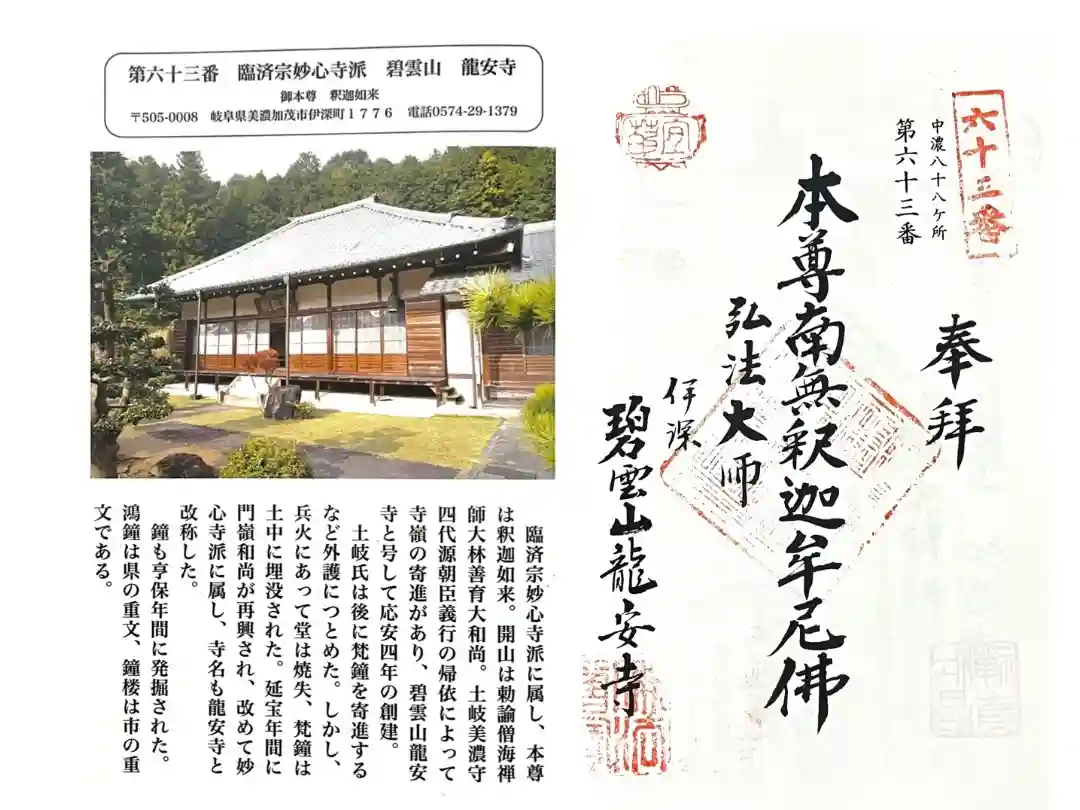 第六十三番　臨済宗妙心寺派　碧雲山　龍安寺
御本尊　釈迦如来
〒505-0008　岐阜県美濃加茂市伊深町１７７６　電話0574-29-1379
臨済宗妙心寺派に属し、本尊
は釈迦如来。開山は勅諭僧海禅
師大林善育大和尚。土岐美濃守
四代源朝臣義行の帰依によって
寺嶺の寄進があり、碧雲山龍安
寺と号して応安四年の創建。
土岐氏は後に梵鐘を寄進する
など外護につとめた。しかし、
兵火にあって堂は焼失、梵鐘は
土中に埋没された。延宝年間に
門嶺和尚が再興され、改めて妙
心寺派に属し、寺名も龍安寺と
改称した。
鐘も亨保年間に発掘された。
鴻鐘は県の重文、鐘楼は市の重
文である。
六十三番
中濃八十八ケ所
第六十三番
奉拝
本尊南無釈迦牟尼佛
弘法大師
伊深
碧雲山龍安寺